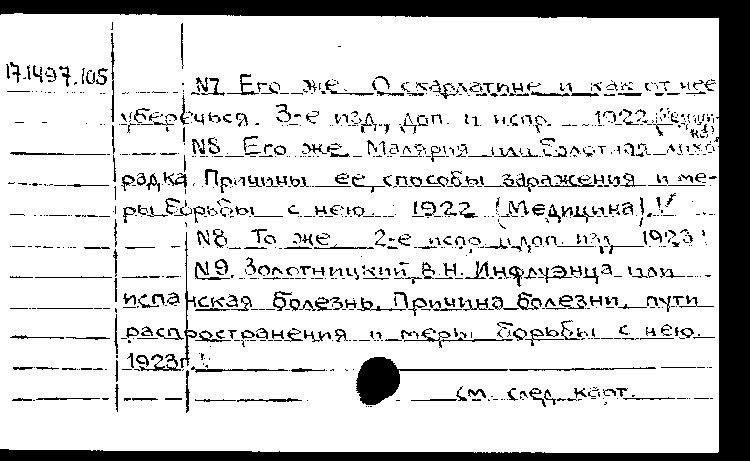 17.1497.105
N7 Его же. О скарлатине и как от нее
уберечься. 3-е изд., доп. и испр. 1922
N8. Его же. Малярия или болотная лихо
радка. Причины ее, способы заражения и ме-
ры борьбы с нею. 1922 (Медицина).
N8 То же. 2-е испр. и доп. изд. 1923
N9. Золотницкий, В.Н. Инфлуэнца или
испанская болезнь. Причина болезни, пути
распространения и меры борьбы с нею.
1923г.
см. след. карт.